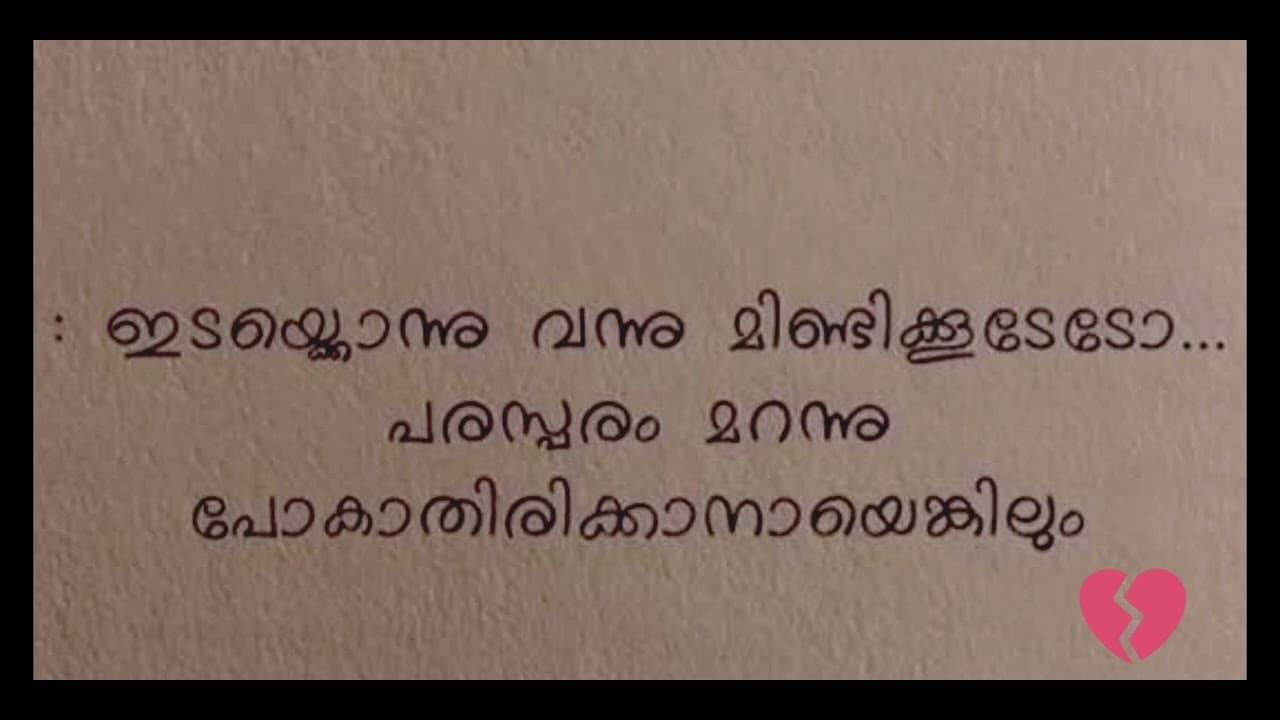 : ഇടയ്ക്കൊന്നു വന്നു മിണ്ടിക്കൂടേടോ...
പരസ്പരം മറന്നു
പോകാതിരിക്കാനായെങ്കിലും